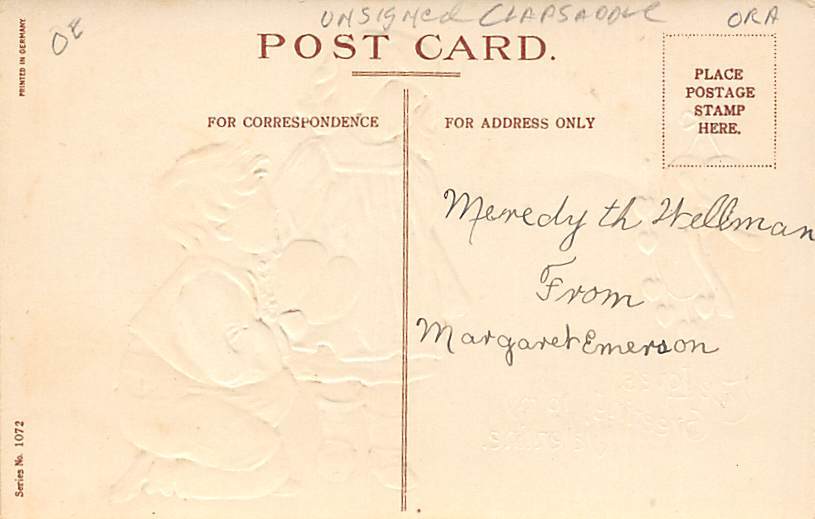 UNSIGNED CLAPSADDLE ORA
PRINTED IN GERMANY
POST CARD.
PLACE
POSTAGE
STAMP
HERE.
FOR CORRESPONDENCE
FOR ADDRESS ONLY
Meredyth Wellman
From
Margaret Emerson
Series No. 1072